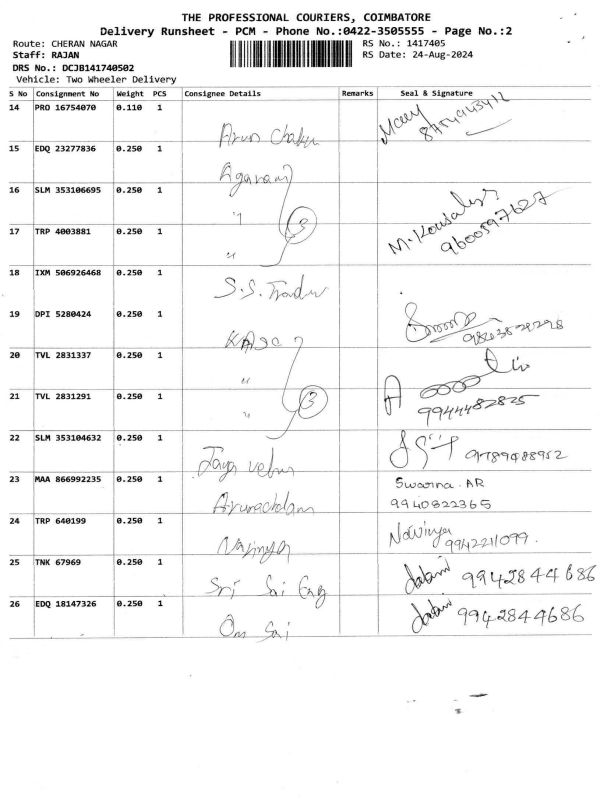 THE PROFESSIONAL COURIERS, COIMBATORE
Delivery Runsheet - PCM - Phone No.:0422-3505555 - Page No.:2
Route: CHERAN NAGAR RS No.: 1417405
Staff: RAJAN RS Date: 24-Aug-2024
DRS No.: DCJB141740502
Vehicle: Two Wheeler Delivery
S No Consignment No Weight PCS Consignee Details Remarks Seal & Signature
14 PRO 16754070 0.110 1 Arun
15 EDQ 23277836 0.250 1 Agaram
16 SLM 353106695 0.250 1 "
17 TRP 4003881 0.250 1 " 3 M. Kousalya
9600597627
18 IXM 506926468 0.250 1 S.S. Trader
19 DPI 5280424 0.250 1
20 TVL 2831337 0.250 1 "
21 TVL 2831291 0.250 1 " 3 9944482825
22 SLM 353104632 0.250 1 Jaya 9789488952
23 MAA 866992235 0.250 1 Arunachalam Swarna. AR
9940822365
24 TRP 640199 0.250 1 Navinya Navinya
9942211099.
25 TNK 67969 0.250 1 Sri Sai Eng 9942844686
26 EDQ 18147326 0.250 1 Om Sai 9942844686